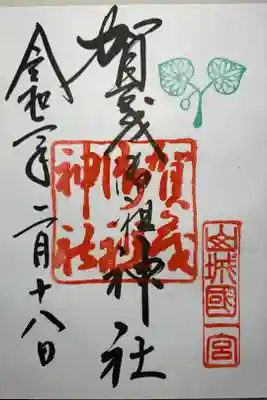 山城國一宮
賀茂御祖神社
賀茂御祖神社
令和二年二月十八日